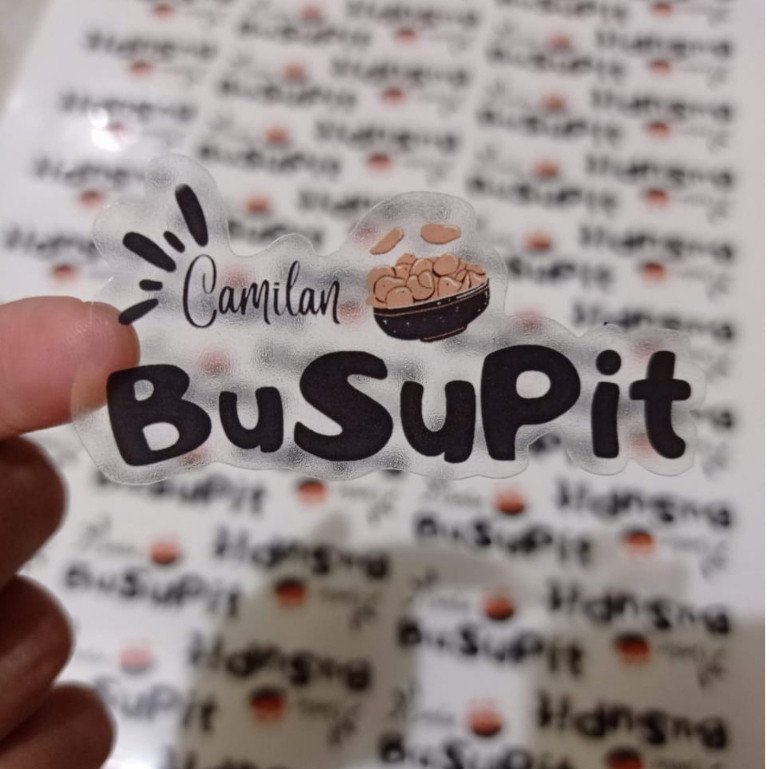 Camilan
BuSuPit